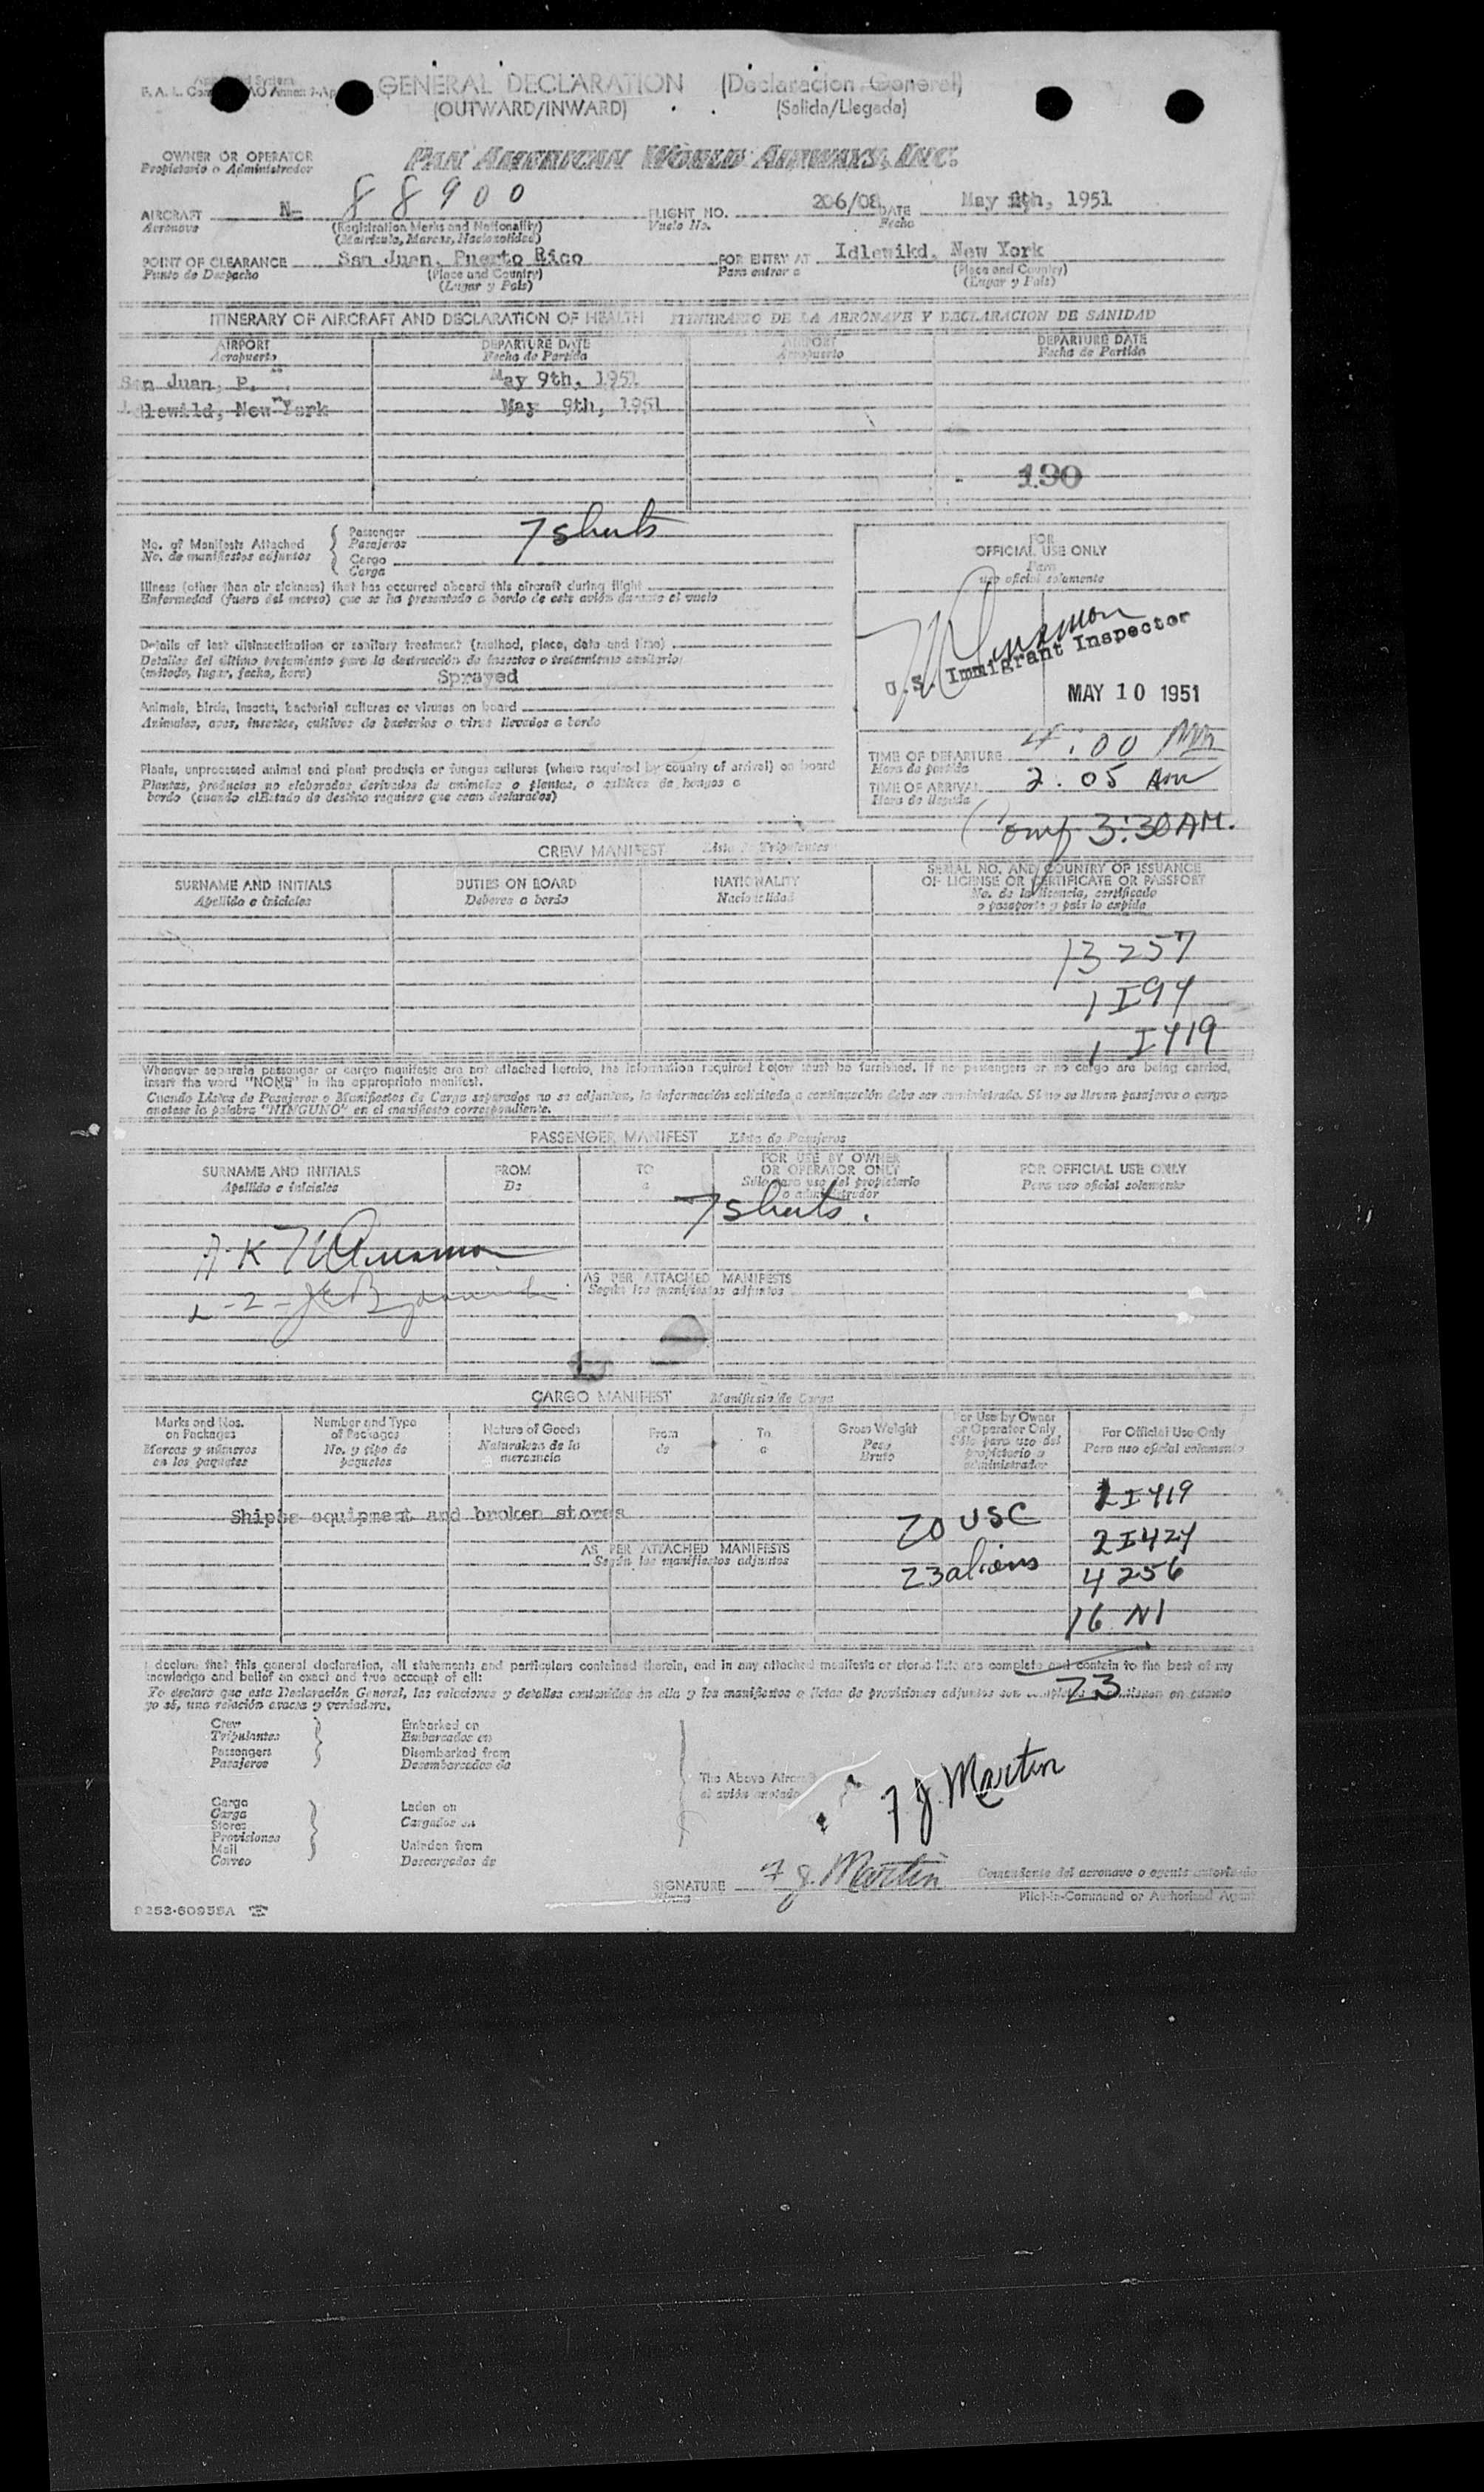 GENERAL DECLARATION (Declaracion General)
(OUTWARD/INWARD) (Salida/Llegada)
OWNER OR OPERATOR PAN AMERICAN WORLD AIRWAYS, INC.
Propietario o Administrador
AIRCRAFT N- 88900 FLIGHT NO. 206/08 DATE May 9th, 1951
Aeronave (Registration Marks and Nationality) Vuelo No. Fecha
(Matricula, Marcas, Nacionalidad)
POINT OF CLEARANCE San Juan, Puerto Rico FOR ENTRY AT Idlewikd, New York
Punto de Despacho (Place and Country) Para entrar a (Place and Country)
(Lugar y Pais) (Lugar y Pais)
ITINERARY OF AIRCRAFT AND DECLARATION OF HEALTH ITINERARIO DE LA AERONAVE Y DECLARACION DE SANIDAD
AIRPORT DEPARTURE DATE AIRPORT DEPARTURE DATE
Aeropuerto Fecha de Partida Aeropuerto Fecha de Partida
San Juan, P. May 9th, 1951
Idlewild, New York May 9th, 1951
190
No. of Manifests Attached Passenger 7 sheets
No. de manifiestos adjuntos Pasajeros
Cargo
Carga
FOR
OFFICIAL USE ONLY
Para
uso oficial solamente
Illness (other than air sickness) that has occurred aboard this aircraft during flight
Enfermedad (fuera del mareo) que se ha presentado a bordo de este avión durante el vuelo
Details of last disinsectization or sanitary treatment (method, place, date and time)
Detalles del último tratamiento para la destrucción de insectos o tratamiento sanitario:
(método, lugar, fecha, hora) Sprayed
U.S. Immigrant Inspector
MAY 10 1951
Animals, birds, insects, bacterial cultures or viruses on board
Animales, aves, insectos, cultivos de bacterias o virus llevados a bordo
Plants, unprocessed animal and plant products or fungus cultures (where required by country of arrival) on board
Plantas, productos no elaborados derivados de animales o plantas, o cultivos de hongos a
bordo (cuando el Estado de destino requiere que sean declarados)
TIME OF DEPARTURE 4:00 PM
Hora de partida
TIME OF ARRIVAL 2:05 Am
Hora de llegada
3:30 AM.
CREW MANIFEST Lista de Tripulantes
SURNAME AND INITIALS DUTIES ON BOARD NATIONALITY SERIAL NO. AND COUNTRY OF ISSUANCE
OF LICENSE OR CERTIFICATE OR PASSPORT
Apellido e iniciales Deberes a bordo Nacionalidad No. de la licencia, certificado
o pasaporte y pais lo expida
13 257
1 I94
1 I419
Whenever separate passenger or cargo manifests are not attached hereto, the information required below must be furnished. If no passengers or no cargo are being carried,
insert the word "NONE" in the appropriate manifest.
Cuando Listas de Pasajeros o Manifiestos de Carga separados no se adjuntan, la información solicitada a continuación debe ser suministrada. Si no se llevan pasajeros o carga
anotese la palabra "NINGUNO" en el manifiesto correspondiente.
PASSENGER MANIFEST Lista de Pasajeros
SURNAME AND INITIALS FROM TO FOR USE BY OWNER
OR OPERATOR ONLY FOR OFFICIAL USE ONLY
Apellido e iniciales De a Sólo para uso del propietario
o administrador Para uso oficial solamente
7 sheets.
A-K
L-Z
AS PER ATTACHED MANIFESTS
Según los manifiestos adjuntos
CARGO MANIFEST Manifiesto de Carga
Marks and Nos.
on Packages
Marcas y números
en los paquetes
Number and Type
of Packages
No. y tipo de
paquetes
Nature of Goods
Naturaleza de la
mercancia
From
de
To
a
Gross Weight
Peso
Bruto
For Use by Owner
or Operator Only
Sólo para uso del
propietario o
administrador
For Official Use Only
Para uso oficial solamente
1 I419
Ships equipment and broken stores
20 USC 2 I424
AS PER ATTACHED MANIFESTS
Según los manifiestos adjuntos
23 aliens 4 256
16 N1
23
I declare that this general declaration, all statements and particulars contained therein, and in any attached manifests or stores lists are complete and contain to the best of my
knowledge and belief an exact and true account of all:
Yo declaro que esta Declaración General, las relaciones y detalles contenidos en ella y los manifiestos o listas de provisiones adjuntos son completos y contienen en cuanto
yo sé, una relación exacta y verdadera.
Crew Embarked on
Tripulantes Embarcados en
Passengers Disembarked from
Pasajeros Desembarcados de
The Above Aircraft
el avión anotado
F. J. Martin
Cargo Laden on
Carga Cargados en
Stores
Provisiones
Mail Unladen from
Correo Descargados de
SIGNATURE F J. Martin Comandante del aeronave o agente autorizado
Firma Pilot-in-Command or Authorized Agent
9253-60955A